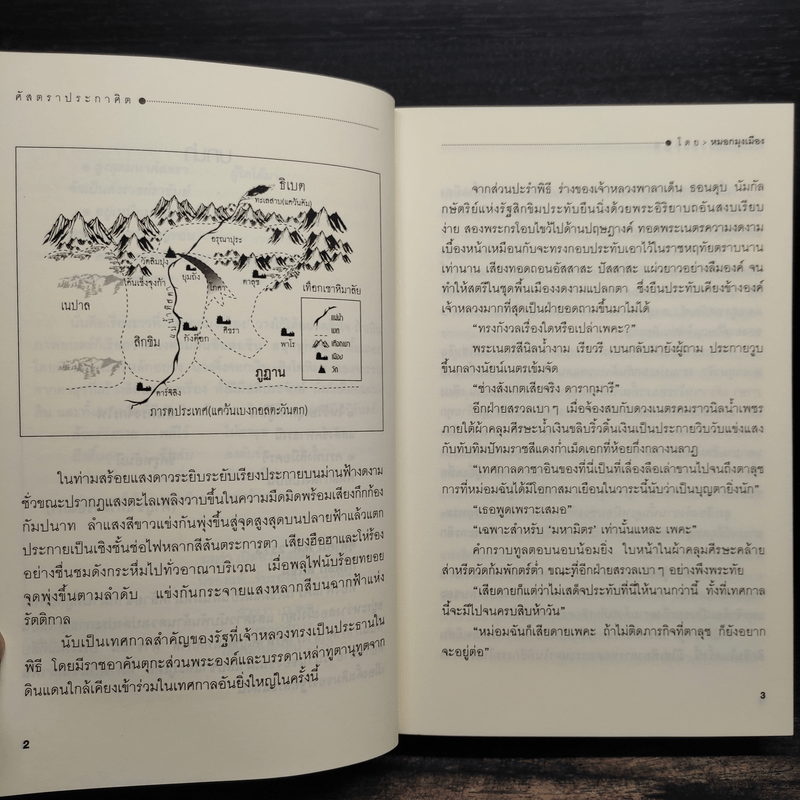 ศัสตราประกาศิต
ธิเบต
ทะเลสาบ(แคว้นคัม)
อรุณาปุระ
วัดซิมปุง
คันเช็งจุงก้า
ยุมถัง
โภคา
คาธูร
เทือกเขาหิมาลัย
เนปาล
แม่น้ำติสตา
สิกขิม
กังต๊อก
ศิขรา
พาโร
ภูฏาน
คาร์จีลิง
แม่น้ำ
เขต
เทือกเขา
เมือง
วัด
ภารตประเทศ(แคว้นเบงกอลตะวันตก)
ในท่ามสร้อยแสงดาวระยิบระยับเรียงประกายบนม่านฟ้างดงาม
ชั่วขณะปรากฏแสงตะไลเพลิงวาบขึ้นในความมืดมิดพร้อมเสียงกึกก้อง
กัมปนาท ลำแสงสีขาวแข่งกันพุ่งขึ้นสู่จุดสูงสุดบนปลายฟ้าแล้วแตก
ประกายเป็นเชิงชั้นช่อไฟหลากสีสันตระการตา เสียงฮือฮาและโห่ร้อง
อย่างชื่นชมดังกระหึ่มไปทั่วอาณาบริเวณ เมื่อพลุไฟนับร้อยทยอย
จุดพุ่งขึ้นตามลำดับ แข่งกันกระจายแสงหลากสีบนฉากฟ้าแห่ง
รัตติกาล
นับเป็นเทศกาลสำคัญของรัฐที่เจ้าหลวงทรงเป็นประธานใน
พิธี โดยมีราชอาคันตุกะส่วนพระองค์และบรรดาเหล่าทูตานุทูตจาก
ดินแดนใกล้เคียงเข้าร่วมในเทศกาลอันยิ่งใหญ่ในครั้งนี้
2
โดย > หมอกมุงเมือง
จากส่วนปะรำพิธี ร่างของเจ้าหลวงพาลาเด็น ธอนดุบ นัมกัล
กษัตริย์แห่งรัฐสิกขิมประทับยืนนิ่งด้วยพระอิริยาบถอันสงบเรียบ
ง่าย สองพระกรโอบไขว้ไปด้านปฤษฎางค์ ทอดพระเนตรความงดงาม
เบื้องหน้าเหมือนกับจะทรงกอบประทับเอาไว้ในราชหฤทัยตราบนาน
เท่านาน เสียงทอดถอนอัสสาสะ ปัสสาสะ แผ่วยาวอย่างลืมองค์ จน
ทำให้สตรีในชุดพื้นเมืองงดงามแปลกตา ซึ่งยืนประทับเคียงข้างองค์
เจ้าหลวงมากที่สุดเป็นฝ่ายอดถามขึ้นมาไม่ได้
“ทรงกังวลเรื่องใดหรือเปล่าเพคะ?”
พระเนตรสีนิลน้ำงาม เรียวรี เบนกลับมายังผู้ถาม ประกายวูบ
ขึ้นกลางนัยน์เนตรเข้มจัด
“ช่างสังเกตเสียจริง ดารากุมารี”
อีกฝ่ายสรวลเบาๆ เมื่อจ้องสบกับดวงเนตรคมราวนิลน้ำเพชร
ภายใต้ผ้าคลุมศีรษะน้ำเงินขลิบริ้วดิ้นเงินเป็นประกายวิบวับแข่งแสง
กับทับทิมปัทมราชสีแดงก่ำเม็ดเอกที่ห้อยกึ่งกลางนลาฏ
“เทศกาลดาซาอินของที่นี่เป็นที่เลื่องลือเล่าขานไปจนถึงตาลุช
การที่หม่อมฉันได้มีโอกาสมาเยือนในวาระนี้นับว่าเป็นบุญตายิ่งนัก”
“เธอพูดเพราะเสมอ”
“เฉพาะสำหรับ ‘มหามิตร’ เท่านั้นแหละ เพคะ”
คำกราบทูลตอบนอบน้อมยิ่ง ใบหน้าในผ้าคลุมศีรษะคล้าย
ส่าหรีตวัดก้มพักตร์ต่ำ ขณะที่อีกฝ่ายสรวลเบาๆ อย่างพึงพระทัย
“เสียดายก็แต่ว่าไม่เสด็จประทับที่นี่ให้นานกว่านี้ ทั้งที่เทศกาล
นี้จะมีไปจนครบสิบห้าวัน”
“หม่อมฉันก็เสียดายเพคะ ถ้าไม่ติดภารกิจที่ตาลุช ก็ยังอยาก
จะอยู่ต่อ”
3